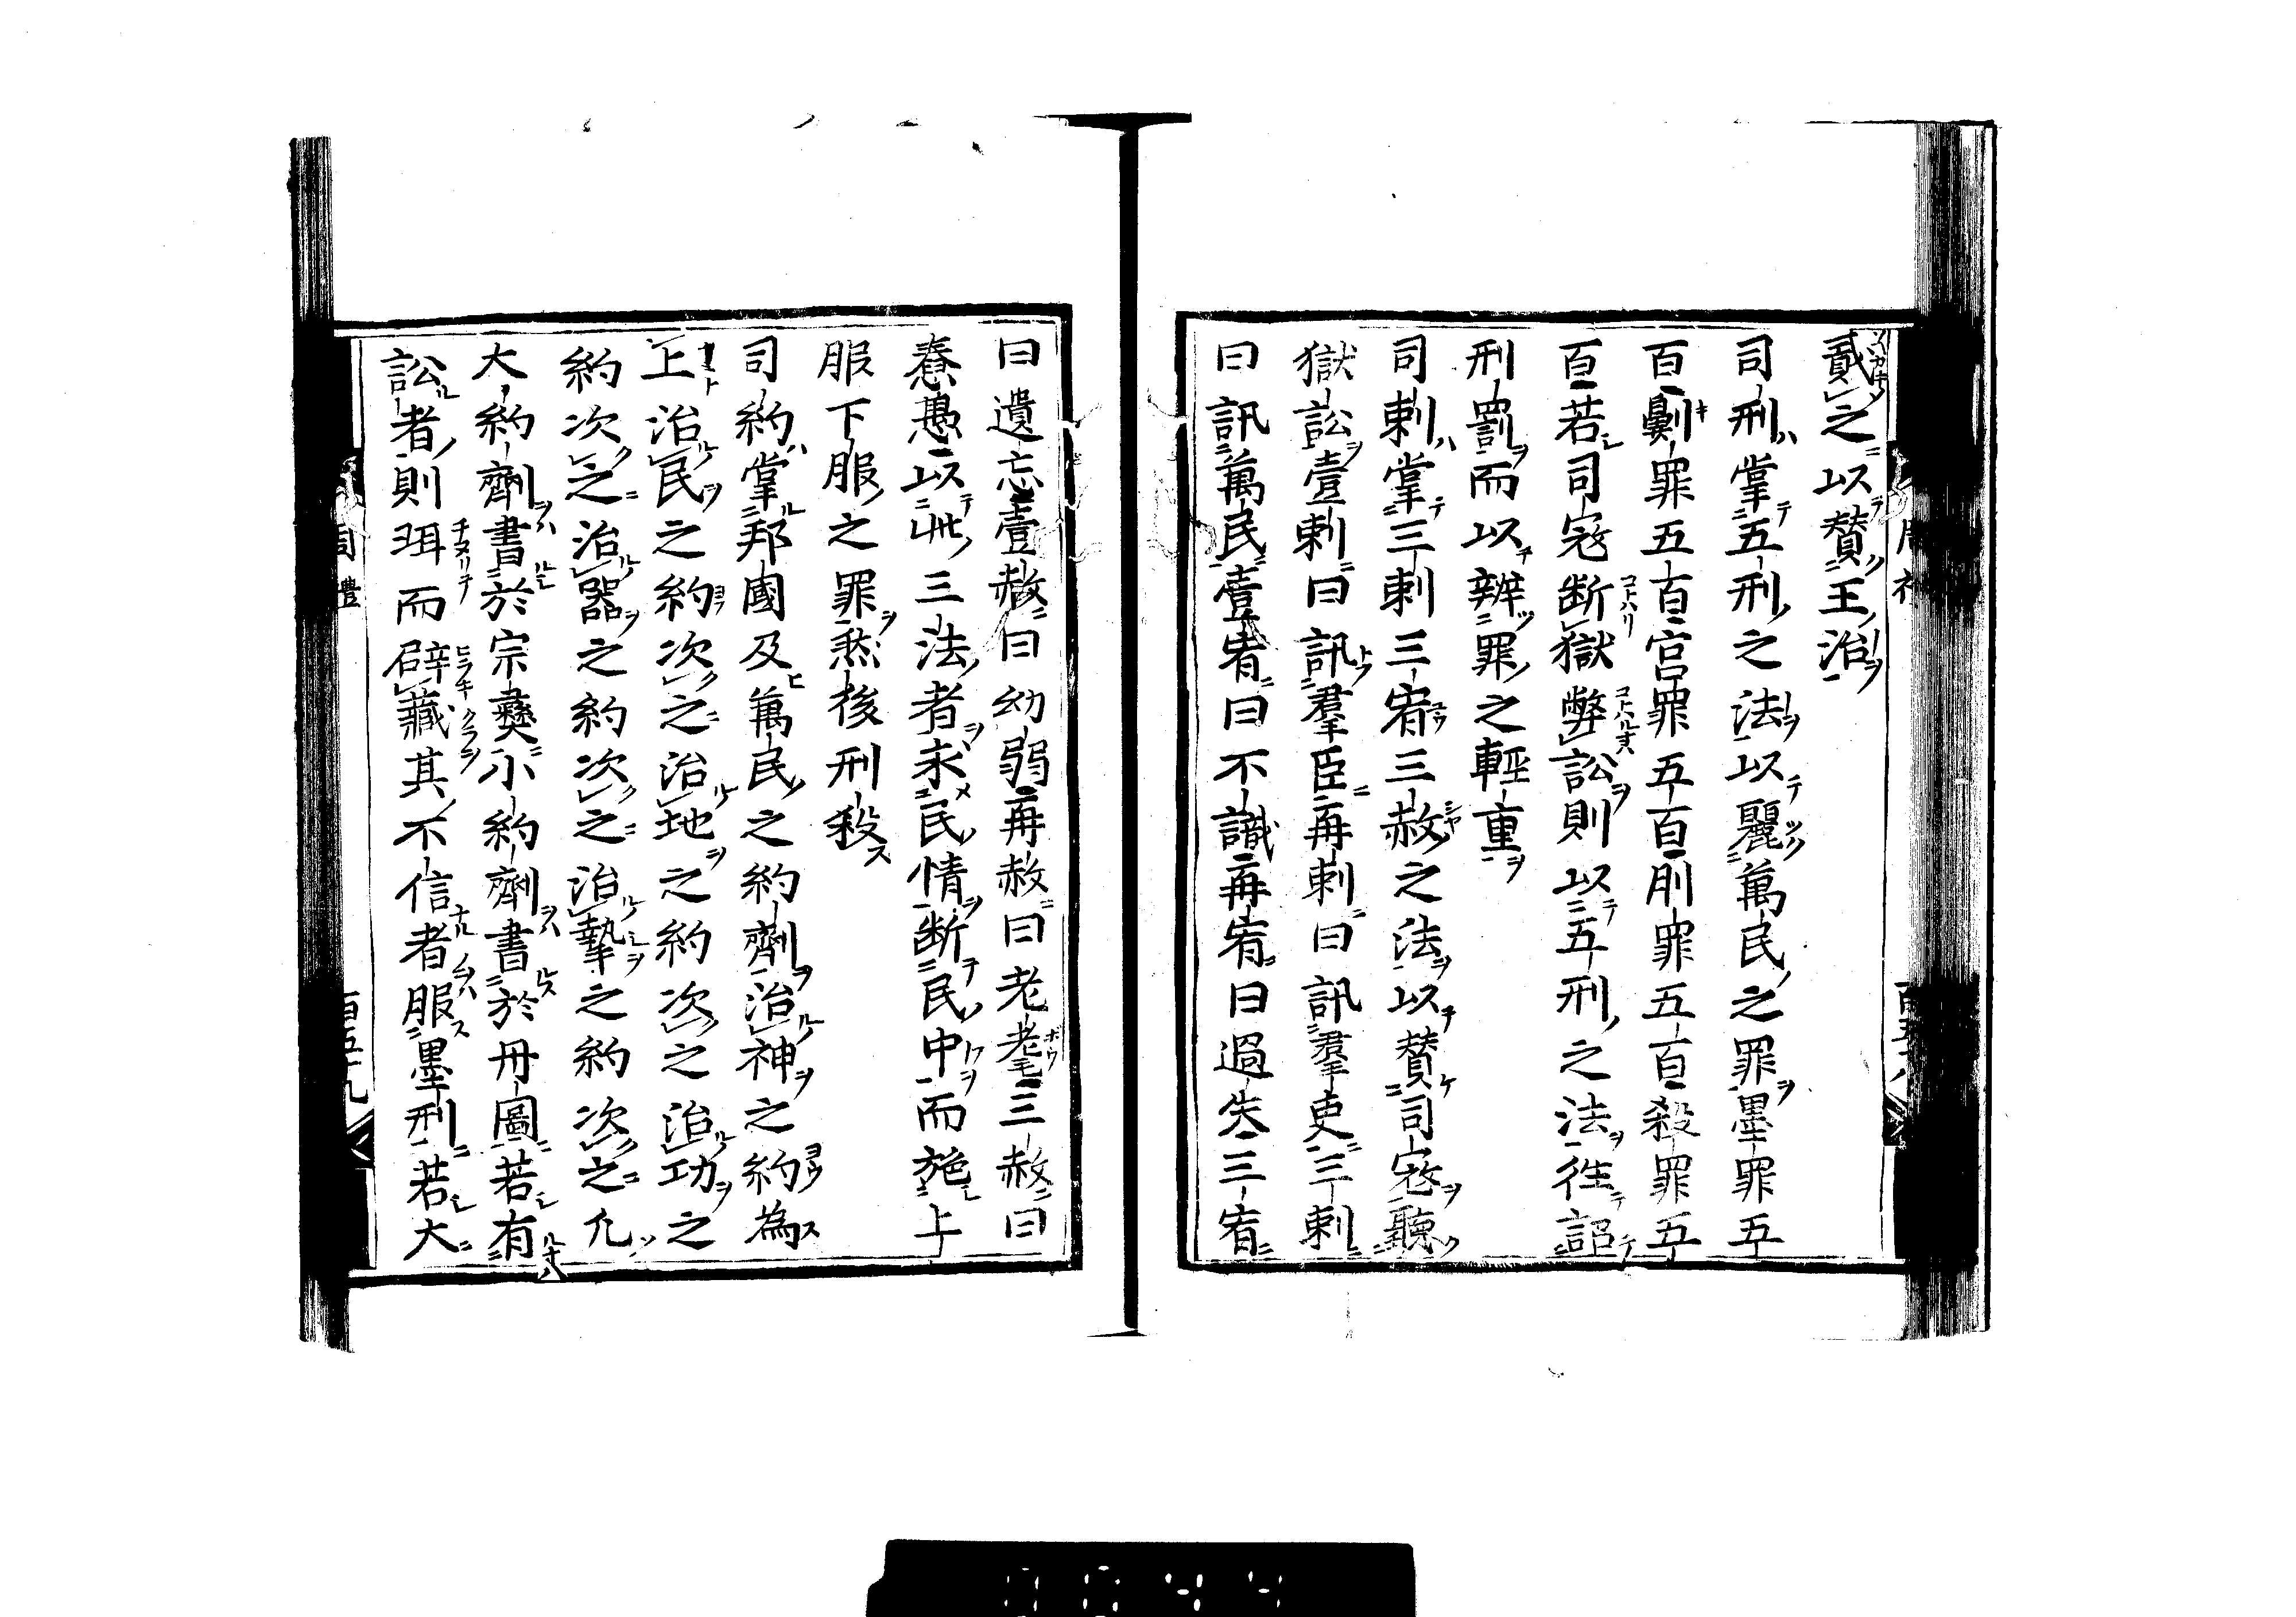 貳之以賛王治
司刑掌五刑之法以麗萬民之罪墨罪五
百劓罪五百宮罪五百刖罪五百殺罪五
百若司寇断獄弊訟則以五刑之法徃詔
刑罰而以辨罪之輕重
司刺掌三刺三宥三赦之法以賛司寇聽
獄訟壹刺曰訊羣臣再刺曰訊羣吏三刺
曰訊萬民壹宥曰不識再宥曰過失三宥
曰遺忘壹赦曰幼弱再赦曰老耄三赦曰
惷愚以此三法者求民情断民中而施上
服下服之罪然後刑殺
司約掌邦國及萬民之約劑治神之約為
上治民之約次之治地之約次之治功之
約次之治器之約次之治摯之約次之凢
大約劑書於宗彝小約劑書於丹圖若有
訟者則珥而辟藏其不信者服墨刑若大
周禮
百五十九